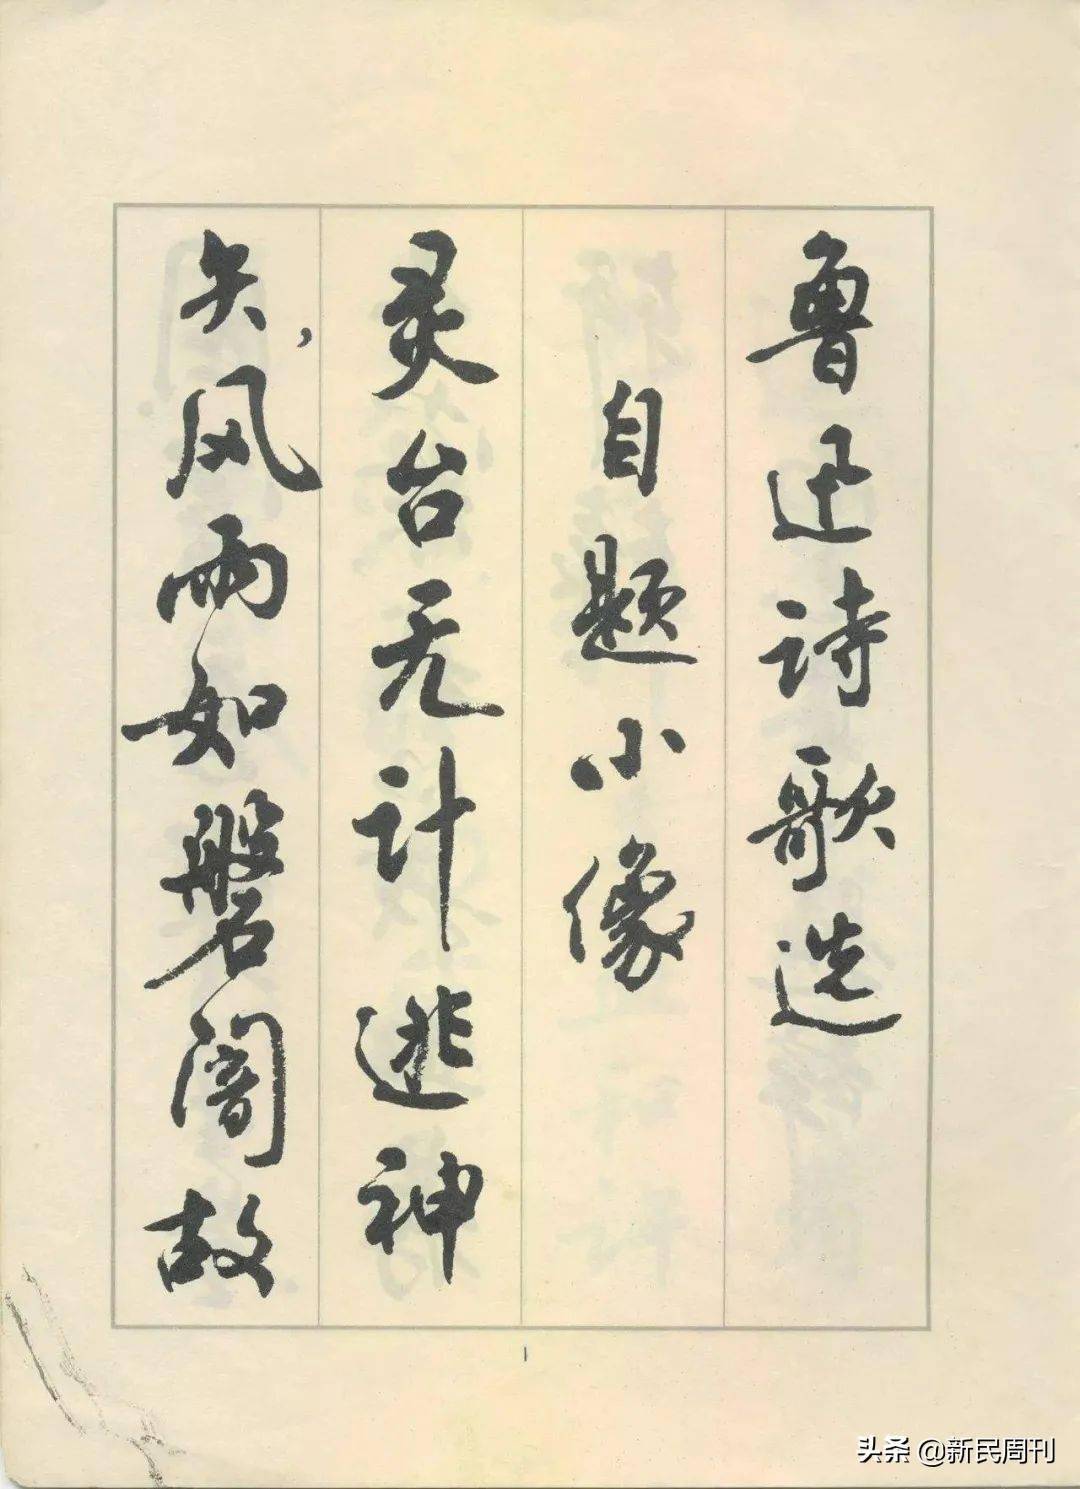 鲁迅诗歌选
自题小像
灵台无计逃神
矢，风雨如磐闇故
1
头条 @新民周刊